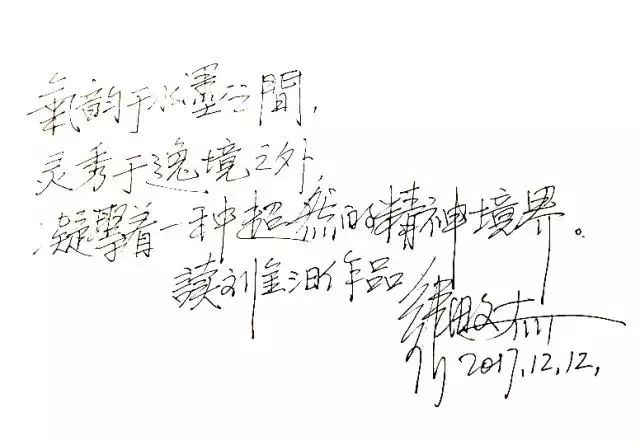 氣韵于水墨之間,
灵秀于逸境之外,
凝聚着一种超然的精神境界。
讀刘作品
2017.12.12.